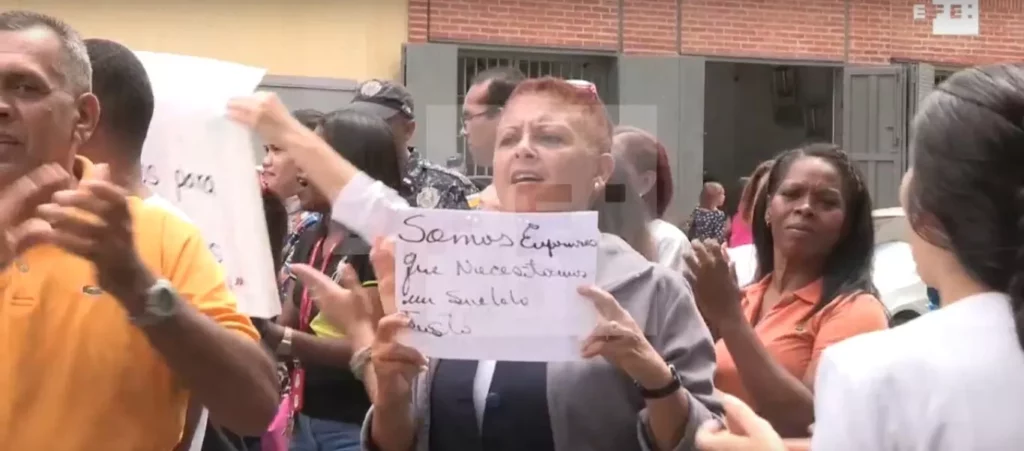 EFE:
para
Somos
que Necesitamos
un Sueldo
Justo